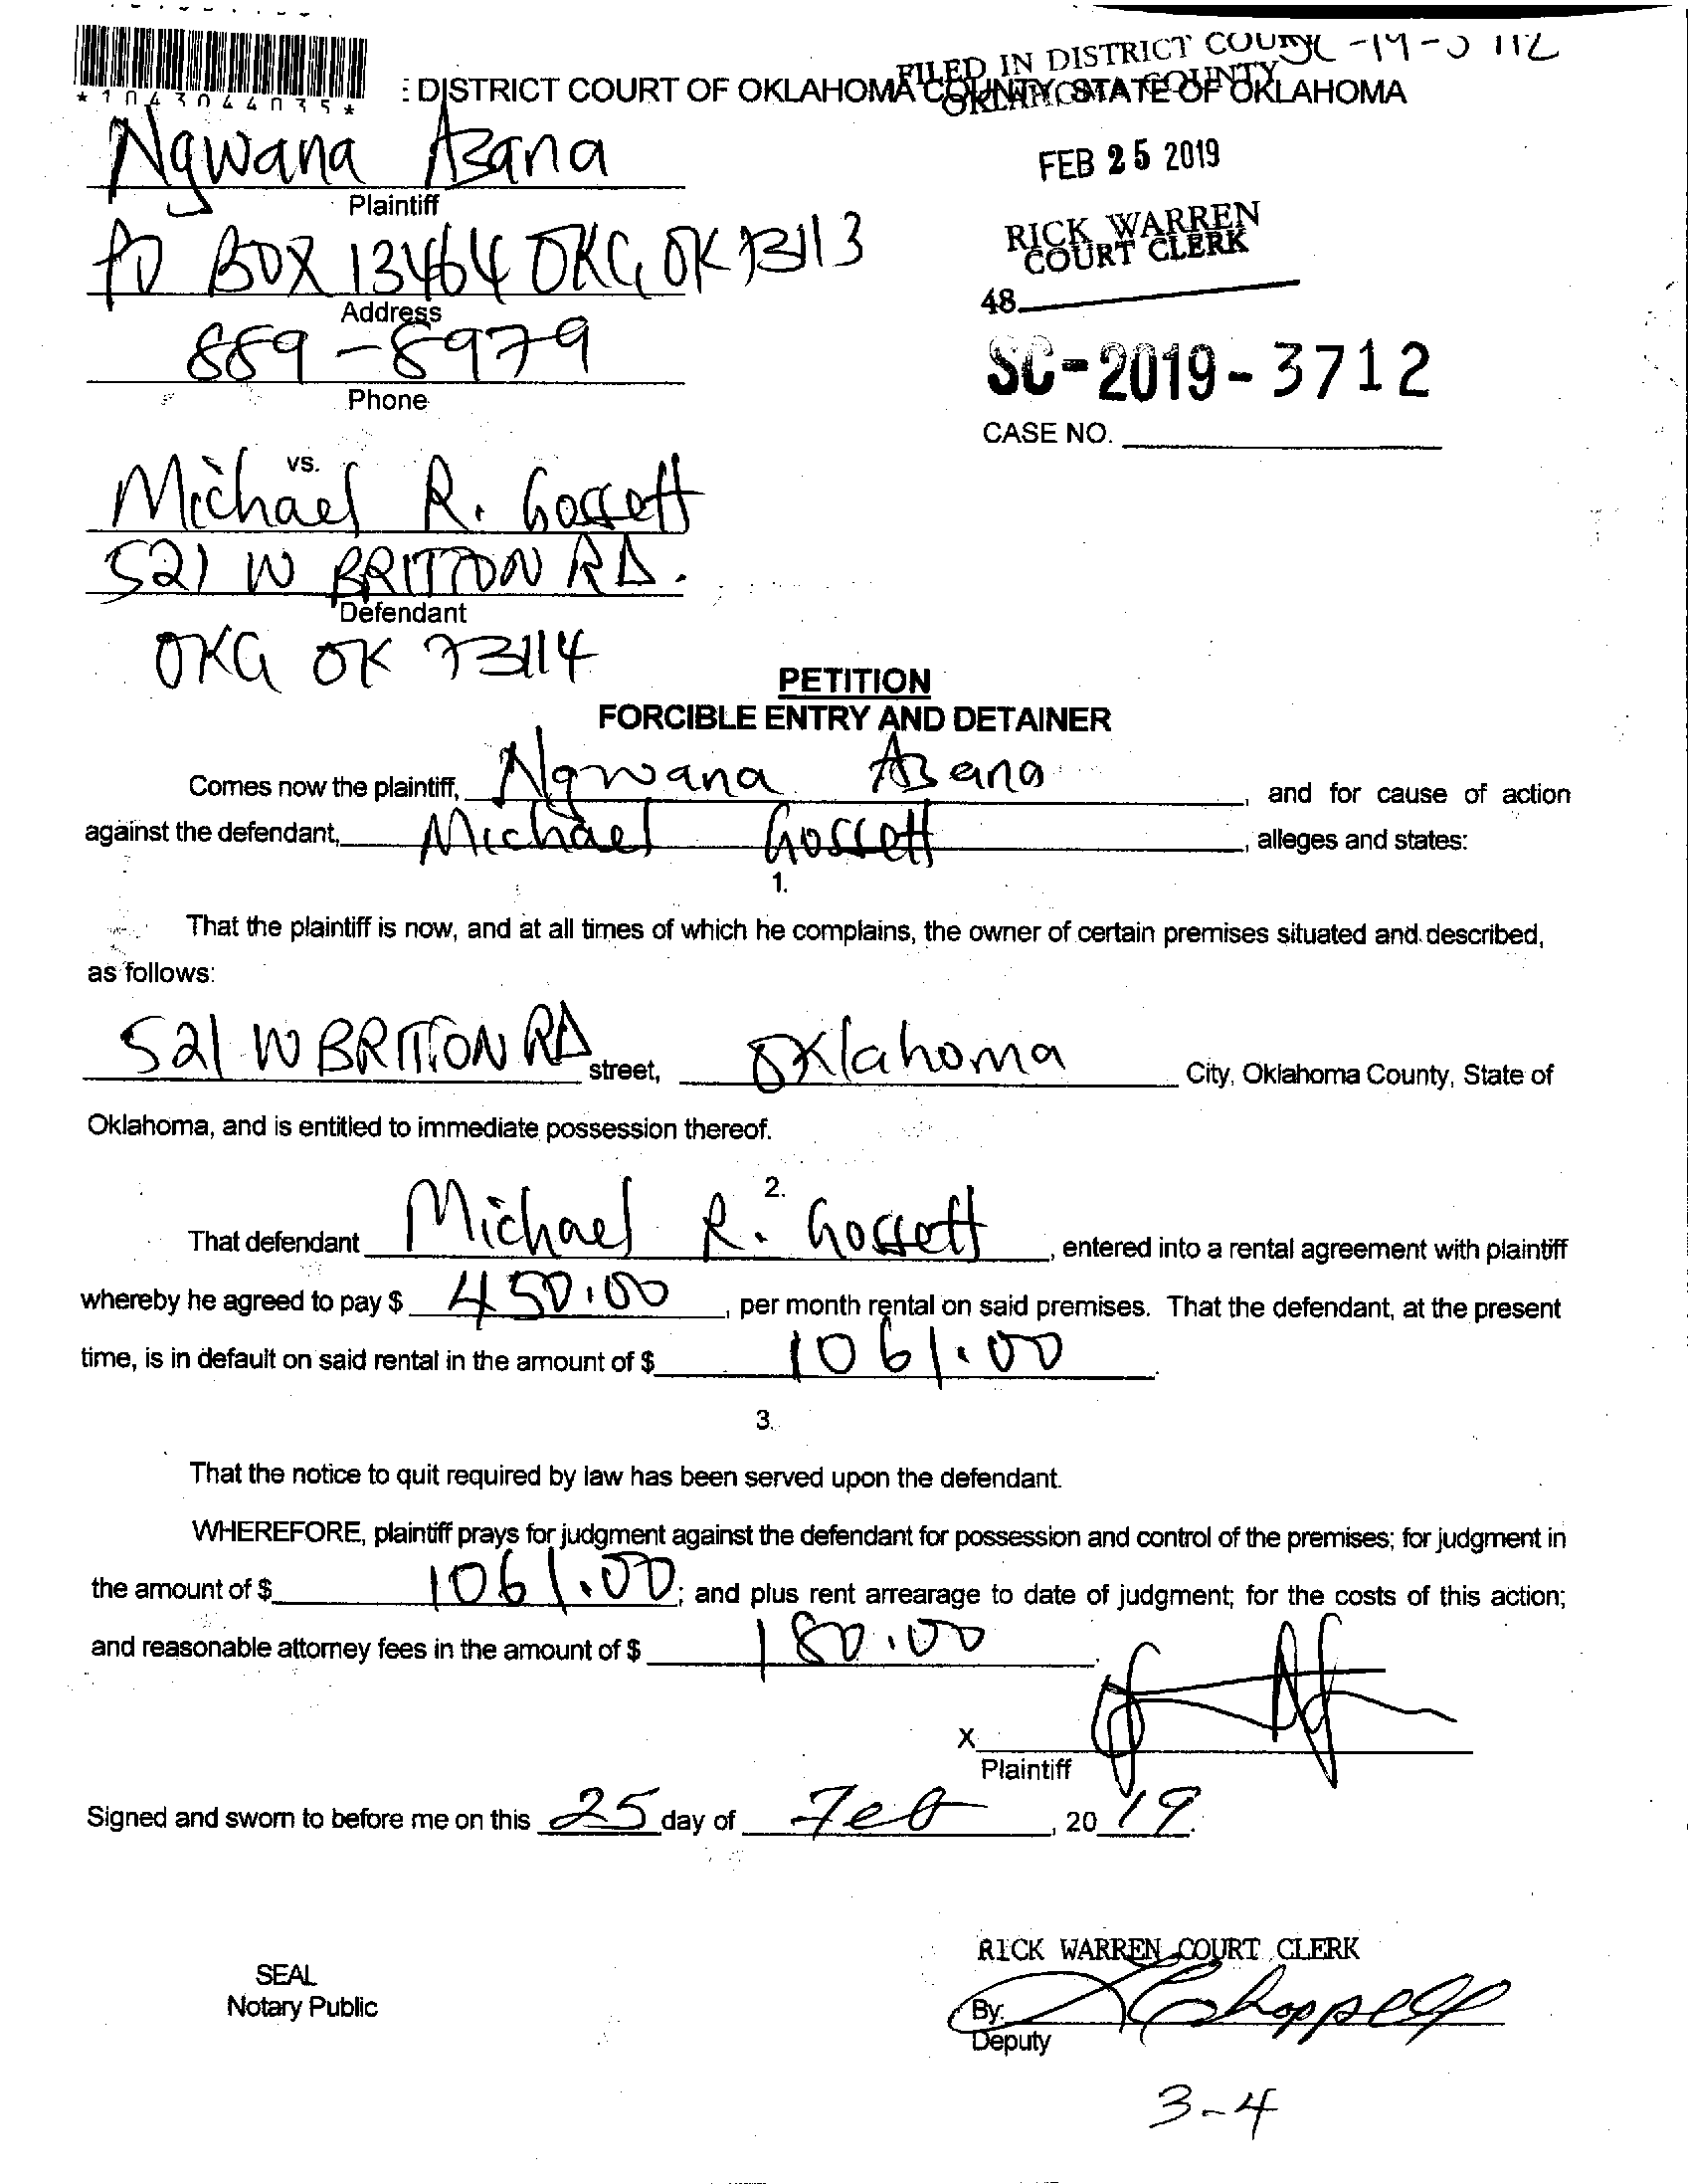 FILED IN DISTRICT COURT
OKLAHOMA COUNTY
*1043044035*
DISTRICT COURT OF OKLAHOMA COUNTY, STATE OF OKLAHOMA
Ngwana Asana
Plaintiff
FEB 25 2019
PO BOX 13464 OKC, OK 73113
Address
RICK WARREN
COURT CLERK
48
889-8979
Phone
SC-2019-3712
CASE NO.
vs.
Michael R. Gossett
521 W BRITTON RD.
Defendant
OKC OK 73114
PETITION
FORCIBLE ENTRY AND DETAINER
Comes now the plaintiff, Ngwana Asana, and for cause of action
against the defendant, Michael Gossett, alleges and states:
1.
That the plaintiff is now, and at all times of which he complains, the owner of certain premises situated and described,
as follows:
521 W BRITTON RD street, Oklahoma City, Oklahoma County, State of
Oklahoma, and is entitled to immediate possession thereof.
2.
That defendant Michael R. Gossett, entered into a rental agreement with plaintiff
whereby he agreed to pay $ 450.00, per month rental on said premises. That the defendant, at the present
time, is in default on said rental in the amount of $ 1061.00.
3.
That the notice to quit required by law has been served upon the defendant.
WHEREFORE, plaintiff prays for judgment against the defendant for possession and control of the premises; for judgment in
the amount of $ 1061.00; and plus rent arrearage to date of judgment; for the costs of this action;
and reasonable attorney fees in the amount of $ 180.00.
X
Plaintiff
Signed and sworn to before me on this 25 day of Feb, 2019.
RICK WARREN COURT CLERK
SEAL
Notary Public
By:
Deputy
3-4